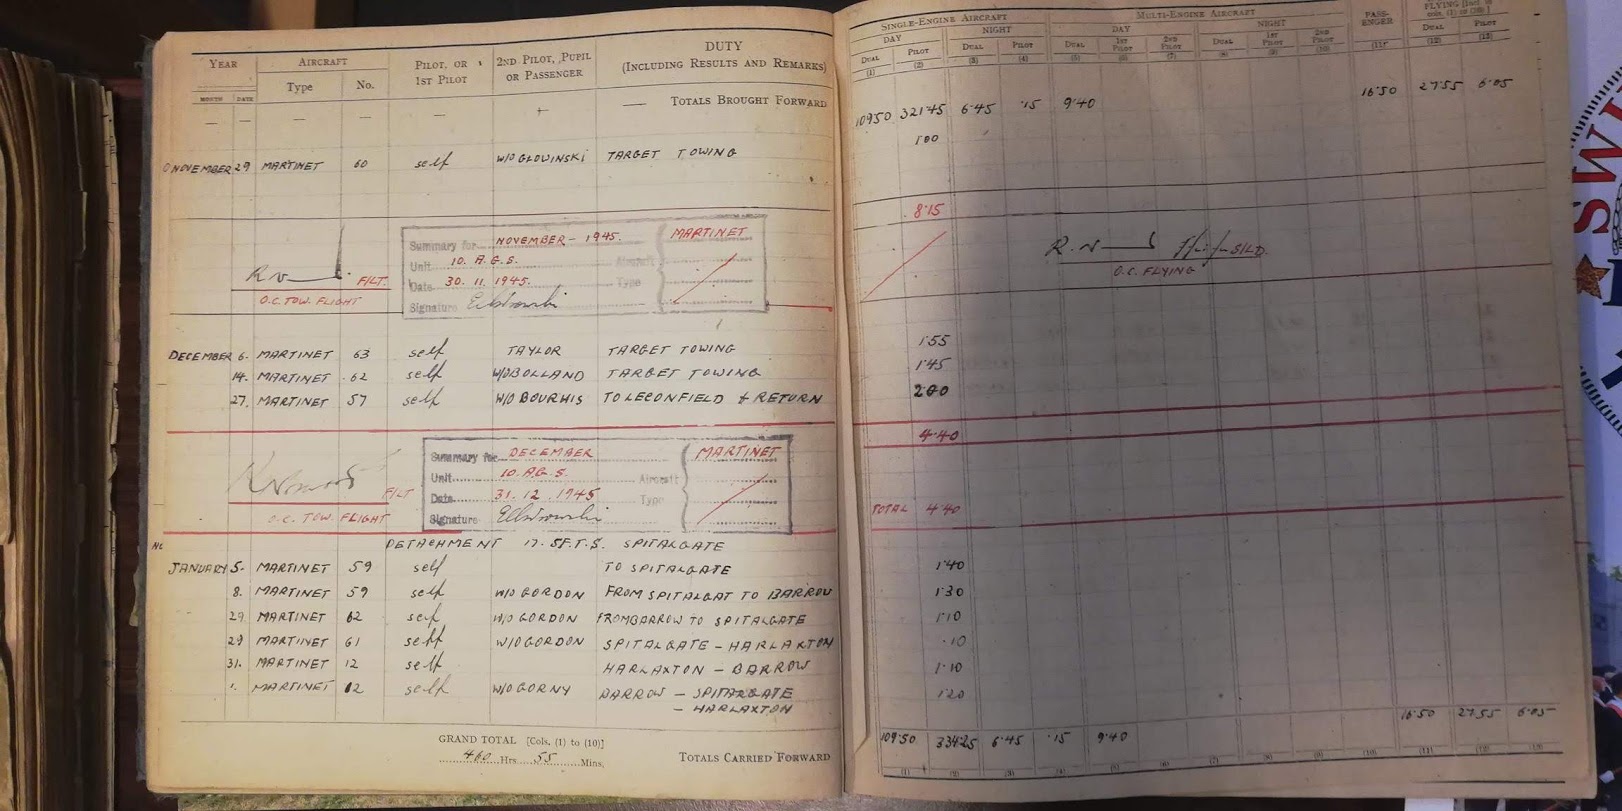 YEAR AIRCRAFT PILOT, OR 1ST PILOT 2ND PILOT, PUPIL OR PASSENGER DUTY (INCLUDING RESULTS AND REMARKS)
MONTH DATE Type No.
— — — — — — — TOTALS BROUGHT FORWARD
NOVEMBER 29 MARTINET 60 self W/O GLOWINSKI TARGET TOWING
Summary for NOVEMBER - 1945. MARTINET
Unit 10. A.G.S. Aircraft
Date 30. 11. 1945. Type
Signature
F/LT.
O.C. TOW. FLIGHT
DECEMBER 6. MARTINET 63 self TAYLOR TARGET TOWING
14. MARTINET 62 self W/O BOLLAND TARGET TOWING
27. MARTINET 57 self W/O BOURHIS TO LECONFIELD & RETURN
Summary for DECEMBER MARTINET
Unit 10 A.G.S. Aircraft
Date 31. 12. 1945 Type
Signature
F/LT
O.C. TOW. FLIGHT
DETACHMENT 17. S.F.T.S. SPITALGATE
JANUARY 5. MARTINET 59 self TO SPITALGATE
8. MARTINET 59 self W/O GORDON FROM SPITALGAT TO BARROW
29 MARTINET 62 self W/O GORDON FROM BARROW TO SPITALGATE
29 MARTINET 61 self W/O GORDON SPITALGATE - HARLAXTON
31. MARTINET 12 self HARLAXTON - BARROW
1. MARTINET 12 self W/O GORNY BARROW - SPITALGATE
- HARLAXTON
GRAND TOTAL [Cols. (1) to (10)]
460 Hrs 55 Mins.
TOTALS CARRIED FORWARD
SINGLE-ENGINE AIRCRAFT MULTI-ENGINE AIRCRAFT PASS-ENGER
DAY NIGHT DAY NIGHT
DUAL PILOT DUAL PILOT DUAL 1ST PILOT 2ND PILOT DUAL 1ST PILOT 2ND PILOT DUAL PILOT
(1) (2) (3) (4) (5) (6) (7) (8) (9) (10) (11) (12) (13)
109.50 321.45 6.45 .15 9.40 16.50 27.55 6.05
1.00
8.15
S/LD.
O.C. FLYING
1.55
1.45
2.00
4.40
TOTAL 4.40
1.40
1.30
1.10
.10
1.10
1.20
109.50 334.25 6.45 .15 9.40 16.50 27.55 6.05
(1) (2) (3) (4) (5) (6) (7) (8) (9) (10) (11) (12) (13)